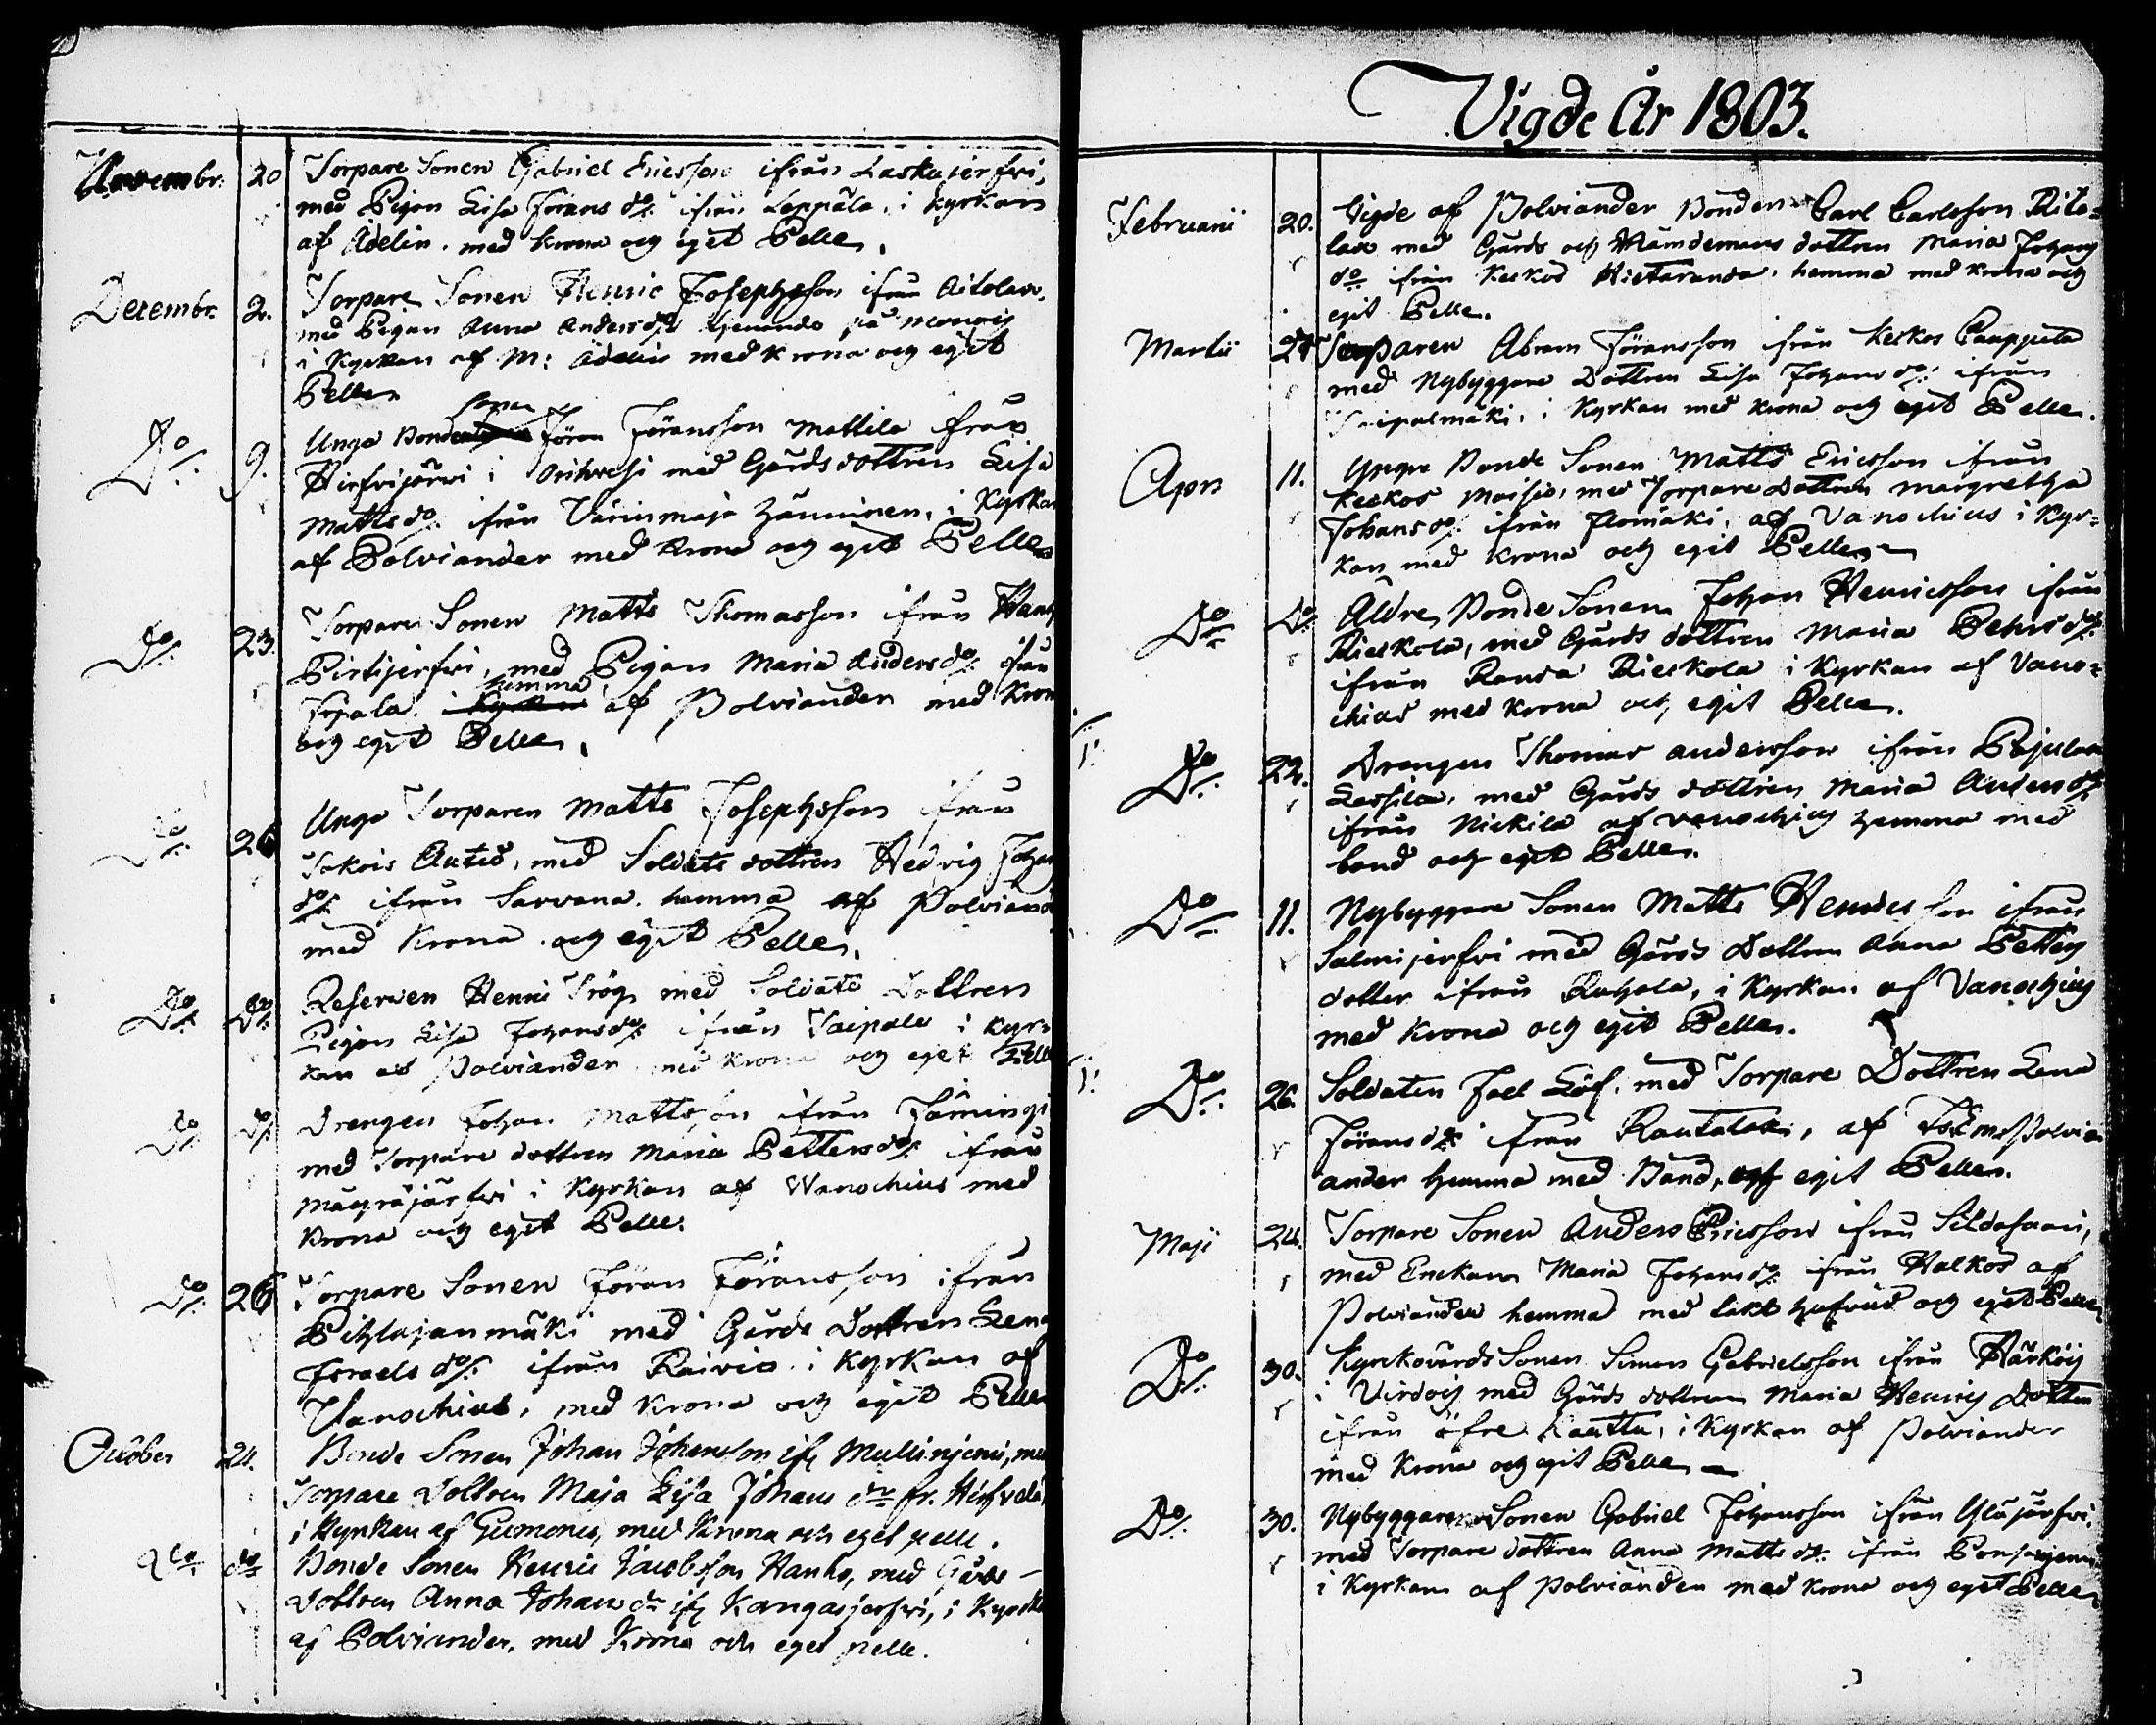 Novembr. 20 Torpare Sonen Gabriel Ericsson ifrån Laskujerfvi,
med Pigan Lisa Jörans do/: ifrån Leppälä, i Kyrkan
af Adelin. med Krona och eget Pelle.
Decembr. 2. Torpare Sonen Henric Josephsson ifrån Aitolax.
med Pigan Anna Anders do/: tjenande på
i Kyrkan af M: Adelin med Krona och egit
Pelle
sonen
Do/: 9. Unga Bonden Jöran Jöransson Mattila ifrån
Hirfvijärvi i Orihvesi med Gårdsdottren Lisa
Matts do/: ifrån Värinmaja Hänninen, i Kyrkan
af Polviander med Krona och egit Pelle
Do/: 23. Torpare Sonen Matts Thomasson ifrån
Pertijerfvi, med Pigan Maria Anders do/: ifrån
hemma
i Kyrkan af Polviander med Kron
och egit Pelle.
Do/: 26 Unga Torparen Matts Josephsson ifrån
Autio, med Soldats dottren Hedvig Johan
do/: ifrån Sarvana. hemma af Polviand
med Krona och egit Pelle.
Do/: Do/: Reserven Henric Trög, med Soldats Dottren
Pigan Lisa Johans do/: ifrån Taipale i Kyr=
kan af Polviander med Krona och eget Pelle
Do/: Do/: Drengen Johan Mattsson ifrån Jämingi
med Torpare dottren Maria Petters do/: ifrån
Mäyräjärfvi i Kyrkan af Wanochius med
Krona och eget Pelle.
Do/: 26 Torpare Sonen Jöran Jöransson ifrån
Pihlajanmäki med Gårds Dottren Lena
Israels do/: ifrån Raivio. i Kyrkan af
Vanochius, med Krona och egit Pelle
October 24. Bonde Sonen Johan Johansson ifr. Mullinjemi, med
Torpare Dottren Maja Lisa Johans dr fr.
i Kyrkan af Gumonus, med Krona och eget pelle.
do do Bonde Sonen Henric Jacobsson Hanho, med Gårds-
Dottren Anna Johans dr ifr. Kangasjerfvi, i Kyrck
af Polviander, med Krona och eget pelle.
Vigde År 1803.
Februarii 20. Vigde af Polviander Bonden Carl Carlsson Rito=
lax med Gårds och Nämdemans dottren Maria Johans
do ifrån Keckos Hietaranda. hemma med Krona och
egit Pelle.
Martii 27 Torparen Abram Jöransson ifrån Keckos
med Nybyggare Dottren Lisa Johans do/: ifrån
Taipalmäki, i Kyrkan med Krona och eget Pelle.
Apri 11. Yngre Bonde Sonen Matts Ericsson ifrån
Keckos Moisio, med Torpare Dottren Margretha
Johans do/: ifrån Flomäki, af Vanochius i Kyr=
kan med Krona och egit Pelle
Do Do/: Äldre Bonde Sonen Johan Henricsson ifrån
Rieskola, med Gårds dottren Maria Pehrs do/:
ifrån Randa Rieskola i Kyrkan af Vano=
chius med Krona och egit Pelle.
Do/: 22. Drengen Thomas Andersson ifrån Pajulax
Lassila, med Gårds dottren Maria Anders do/:
ifrån Niekila af Vanochius hemma med
band och egit Pelle.
Do 11. Nybyggare Sonen Matts Henricsson ifrån
Salmijerfvi med Gårds Dottren Anna Petters
dotter ifrån Ruhala, i Kyrkan af Vanochius
med Krona och egit Pelle.
Do/: 26. Soldaten Joel Löf, med Torpare Dottren Lena
Jörans do/: ifrån Rautalax, af Polvi
ander hemma med Band, och egit Pelle.
Maji 24. Torpare Sonen Anders Ericsson ifrån Sildasaari,
med Enckan Maria Johans do/: ifrån Halkos af
Polviander hemma med täkt hufvud och egit Pelle
Do/: 30. Kyrckovärds Sonen Simon Gabrielsson ifrån Härköis
i Virdois med Gårds dottren Maria Henrics Dotter
ifrån öfre Kauttu, i Kyrkan af Polviander
med Krona och egit Pelle
Do/: 30. Nybyggare Sonen Gabriel Johansson ifrån Yläjärfvi.
med Torpare dottren Anna Matts do/: ifrån
i Kyrkan af Polviander med Krona och egit Pelle